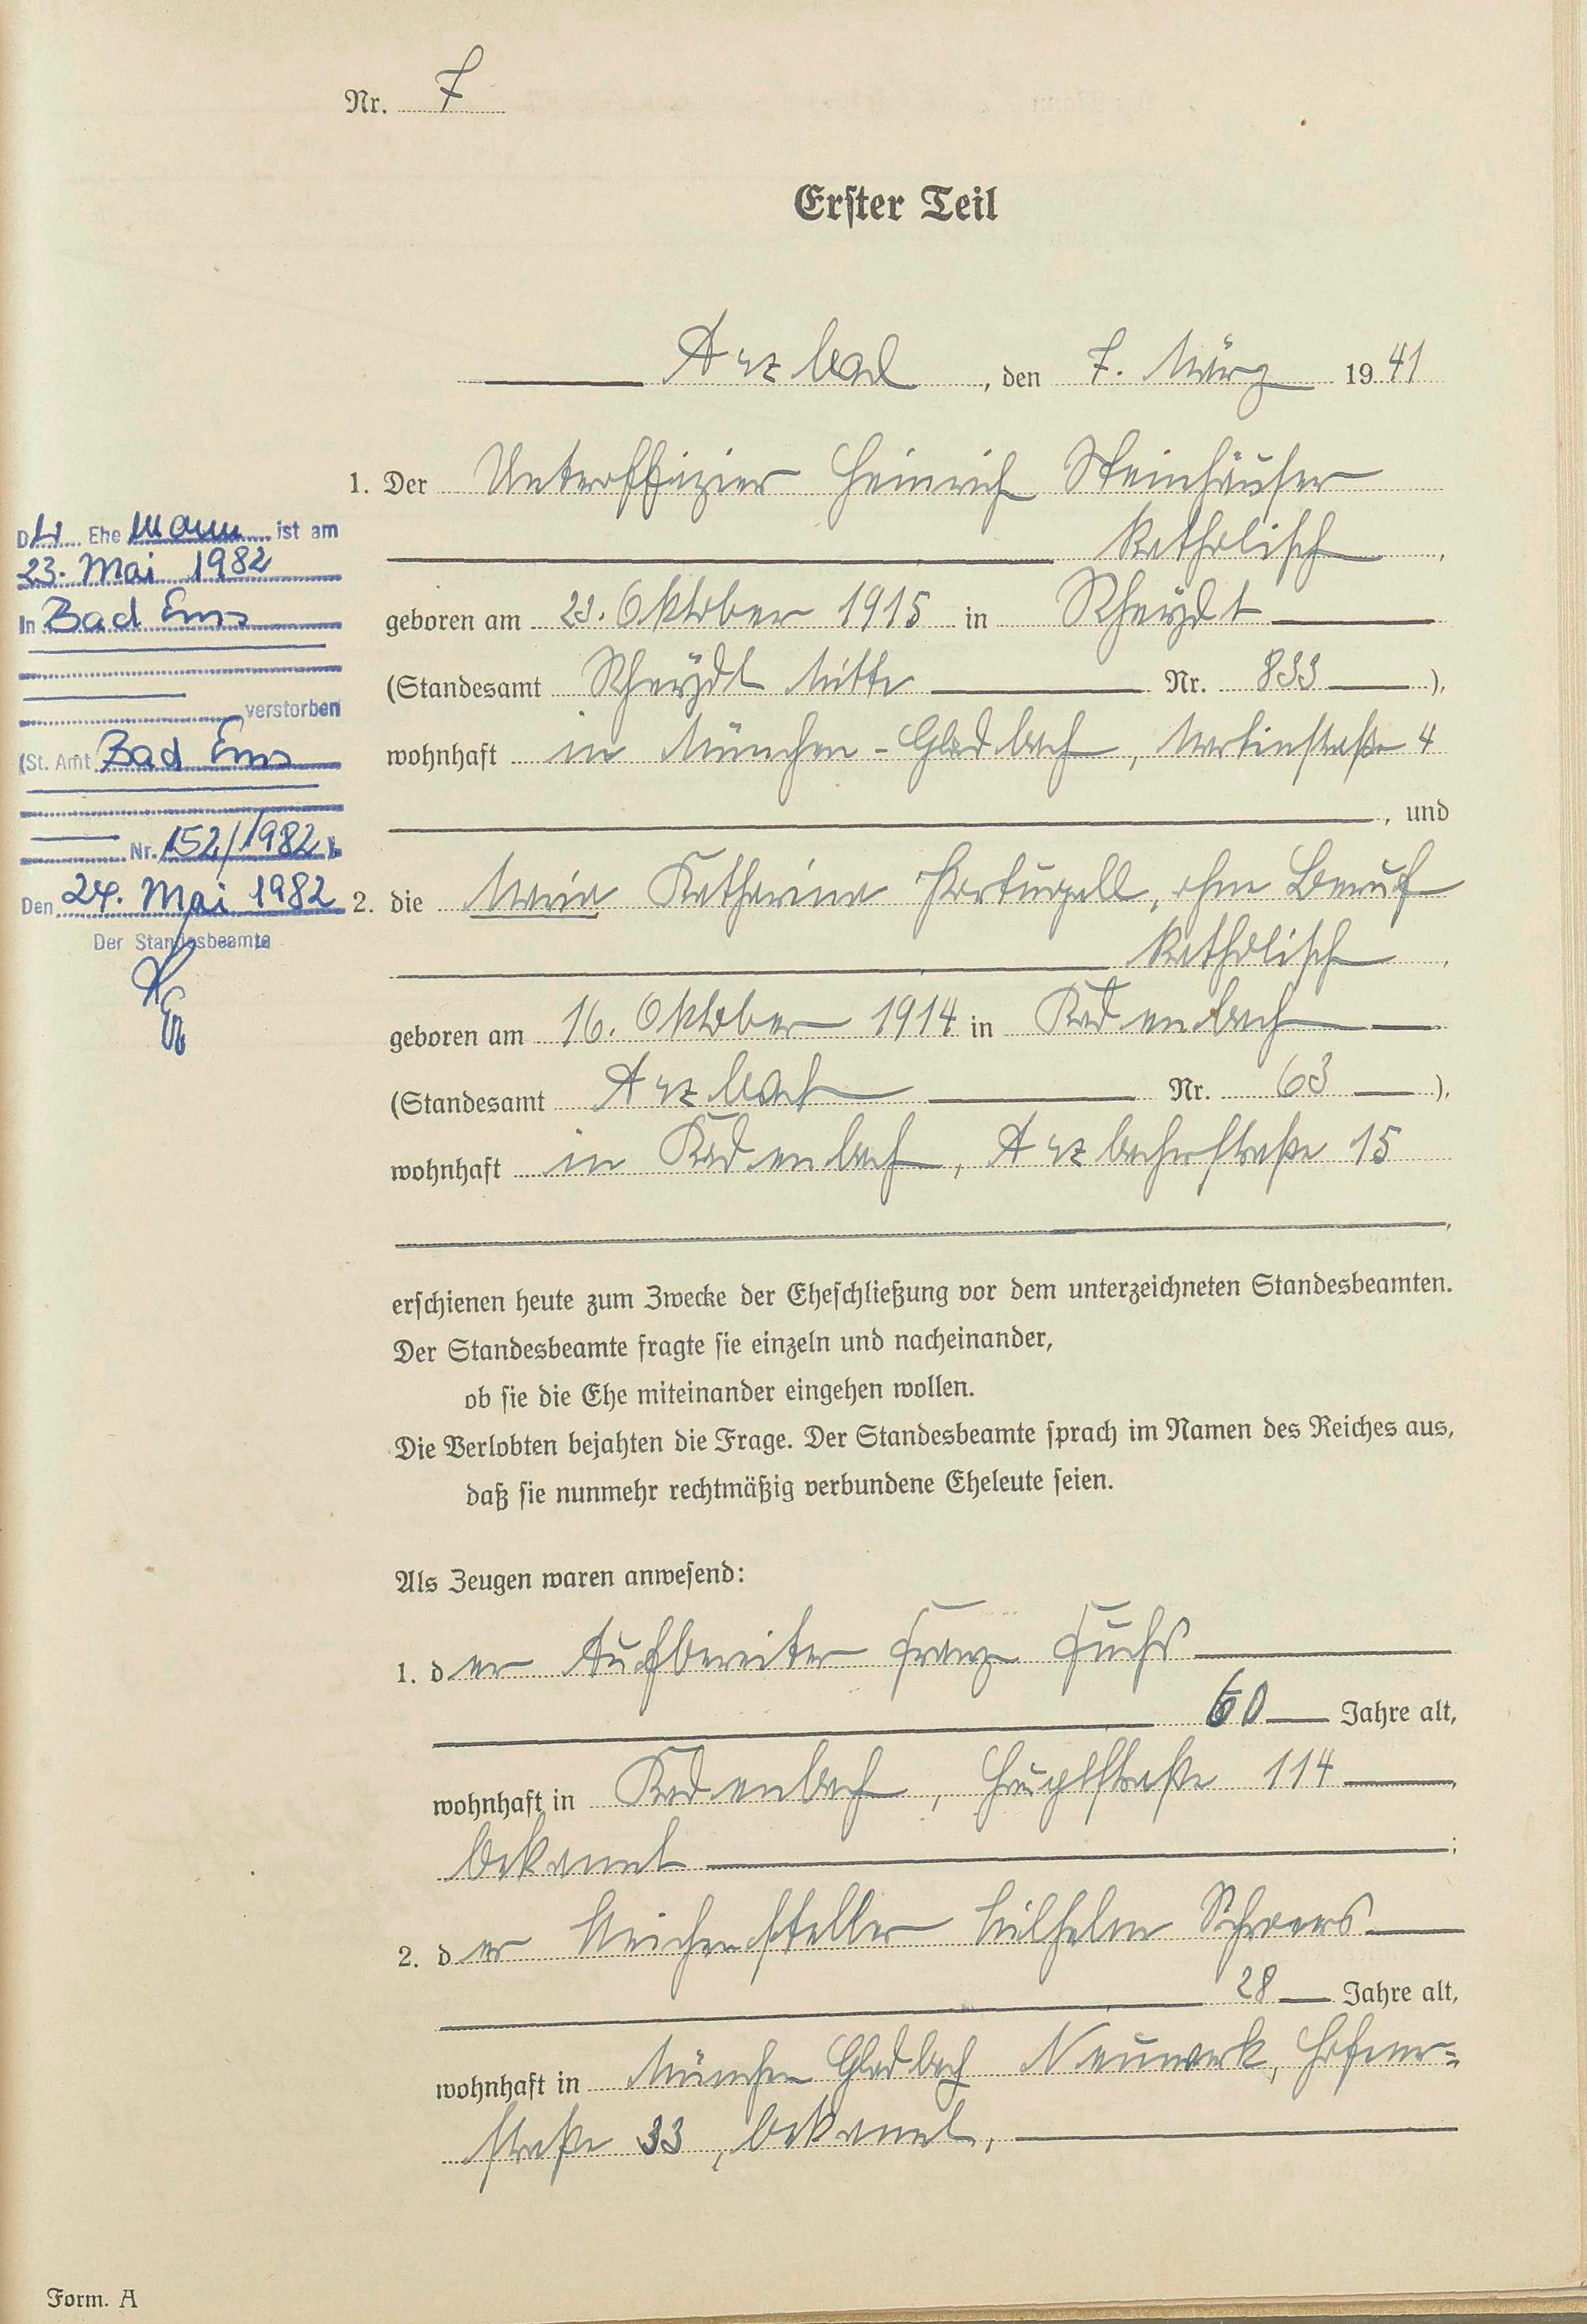 Nr. 7
Erster Teil
Arzbach, den 7. März 1941
1. Der Unteroffizier Heinrich Steinhäuser
katholisch,
geboren am 23. Oktober 1915 in Rheydt
(Standesamt Rheydt Mitte Nr. 833),
wohnhaft in München-Gladbach, Martinstraße 4
, und
2. die Maria Katharina Portugall, ohne Beruf
katholisch,
geboren am 16. Oktober 1914 in Kadenbach
(Standesamt Arzbach Nr. 63),
wohnhaft in Kadenbach, Arzbacherstraße 15
,
erschienen heute zum Zwecke der Eheschließung vor dem unterzeichneten Standesbeamten.
Der Standesbeamte fragte sie einzeln und nacheinander,
ob sie die Ehe miteinander eingehen wollen.
Die Verlobten bejahten die Frage. Der Standesbeamte sprach im Namen des Reiches aus,
daß sie nunmehr rechtmäßig verbundene Eheleute seien.
Als Zeugen waren anwesend:
1. der Aufbereiter Franz Fuchs
60 Jahre alt,
wohnhaft in Kadenbach, Hauptstraße 114,
bekannt;
2. der Weichensteller Wilhelm Schroers
28 Jahre alt,
wohnhaft in München Gladbach Neuwerk, Hofener=
straße 33, bekannt.
Der Ehe Mann ist am
23. Mai 1982
in Bad Ems
verstorben
(St. Amt Bad Ems
Nr. 152/1982)
Den 24. Mai 1982
Der Standesbeamte
Form. A